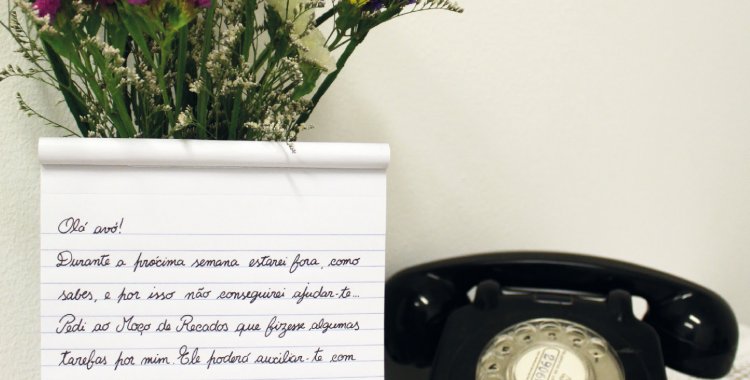 Olá avó!
Durante a prócima semana estarei fora, como
sabes, e por isso não conseguirei ajudar-te...
Pedi ao Moço de Recados que fizesse algumas
tarefas por mim. Ele poderá auxiliar-te com